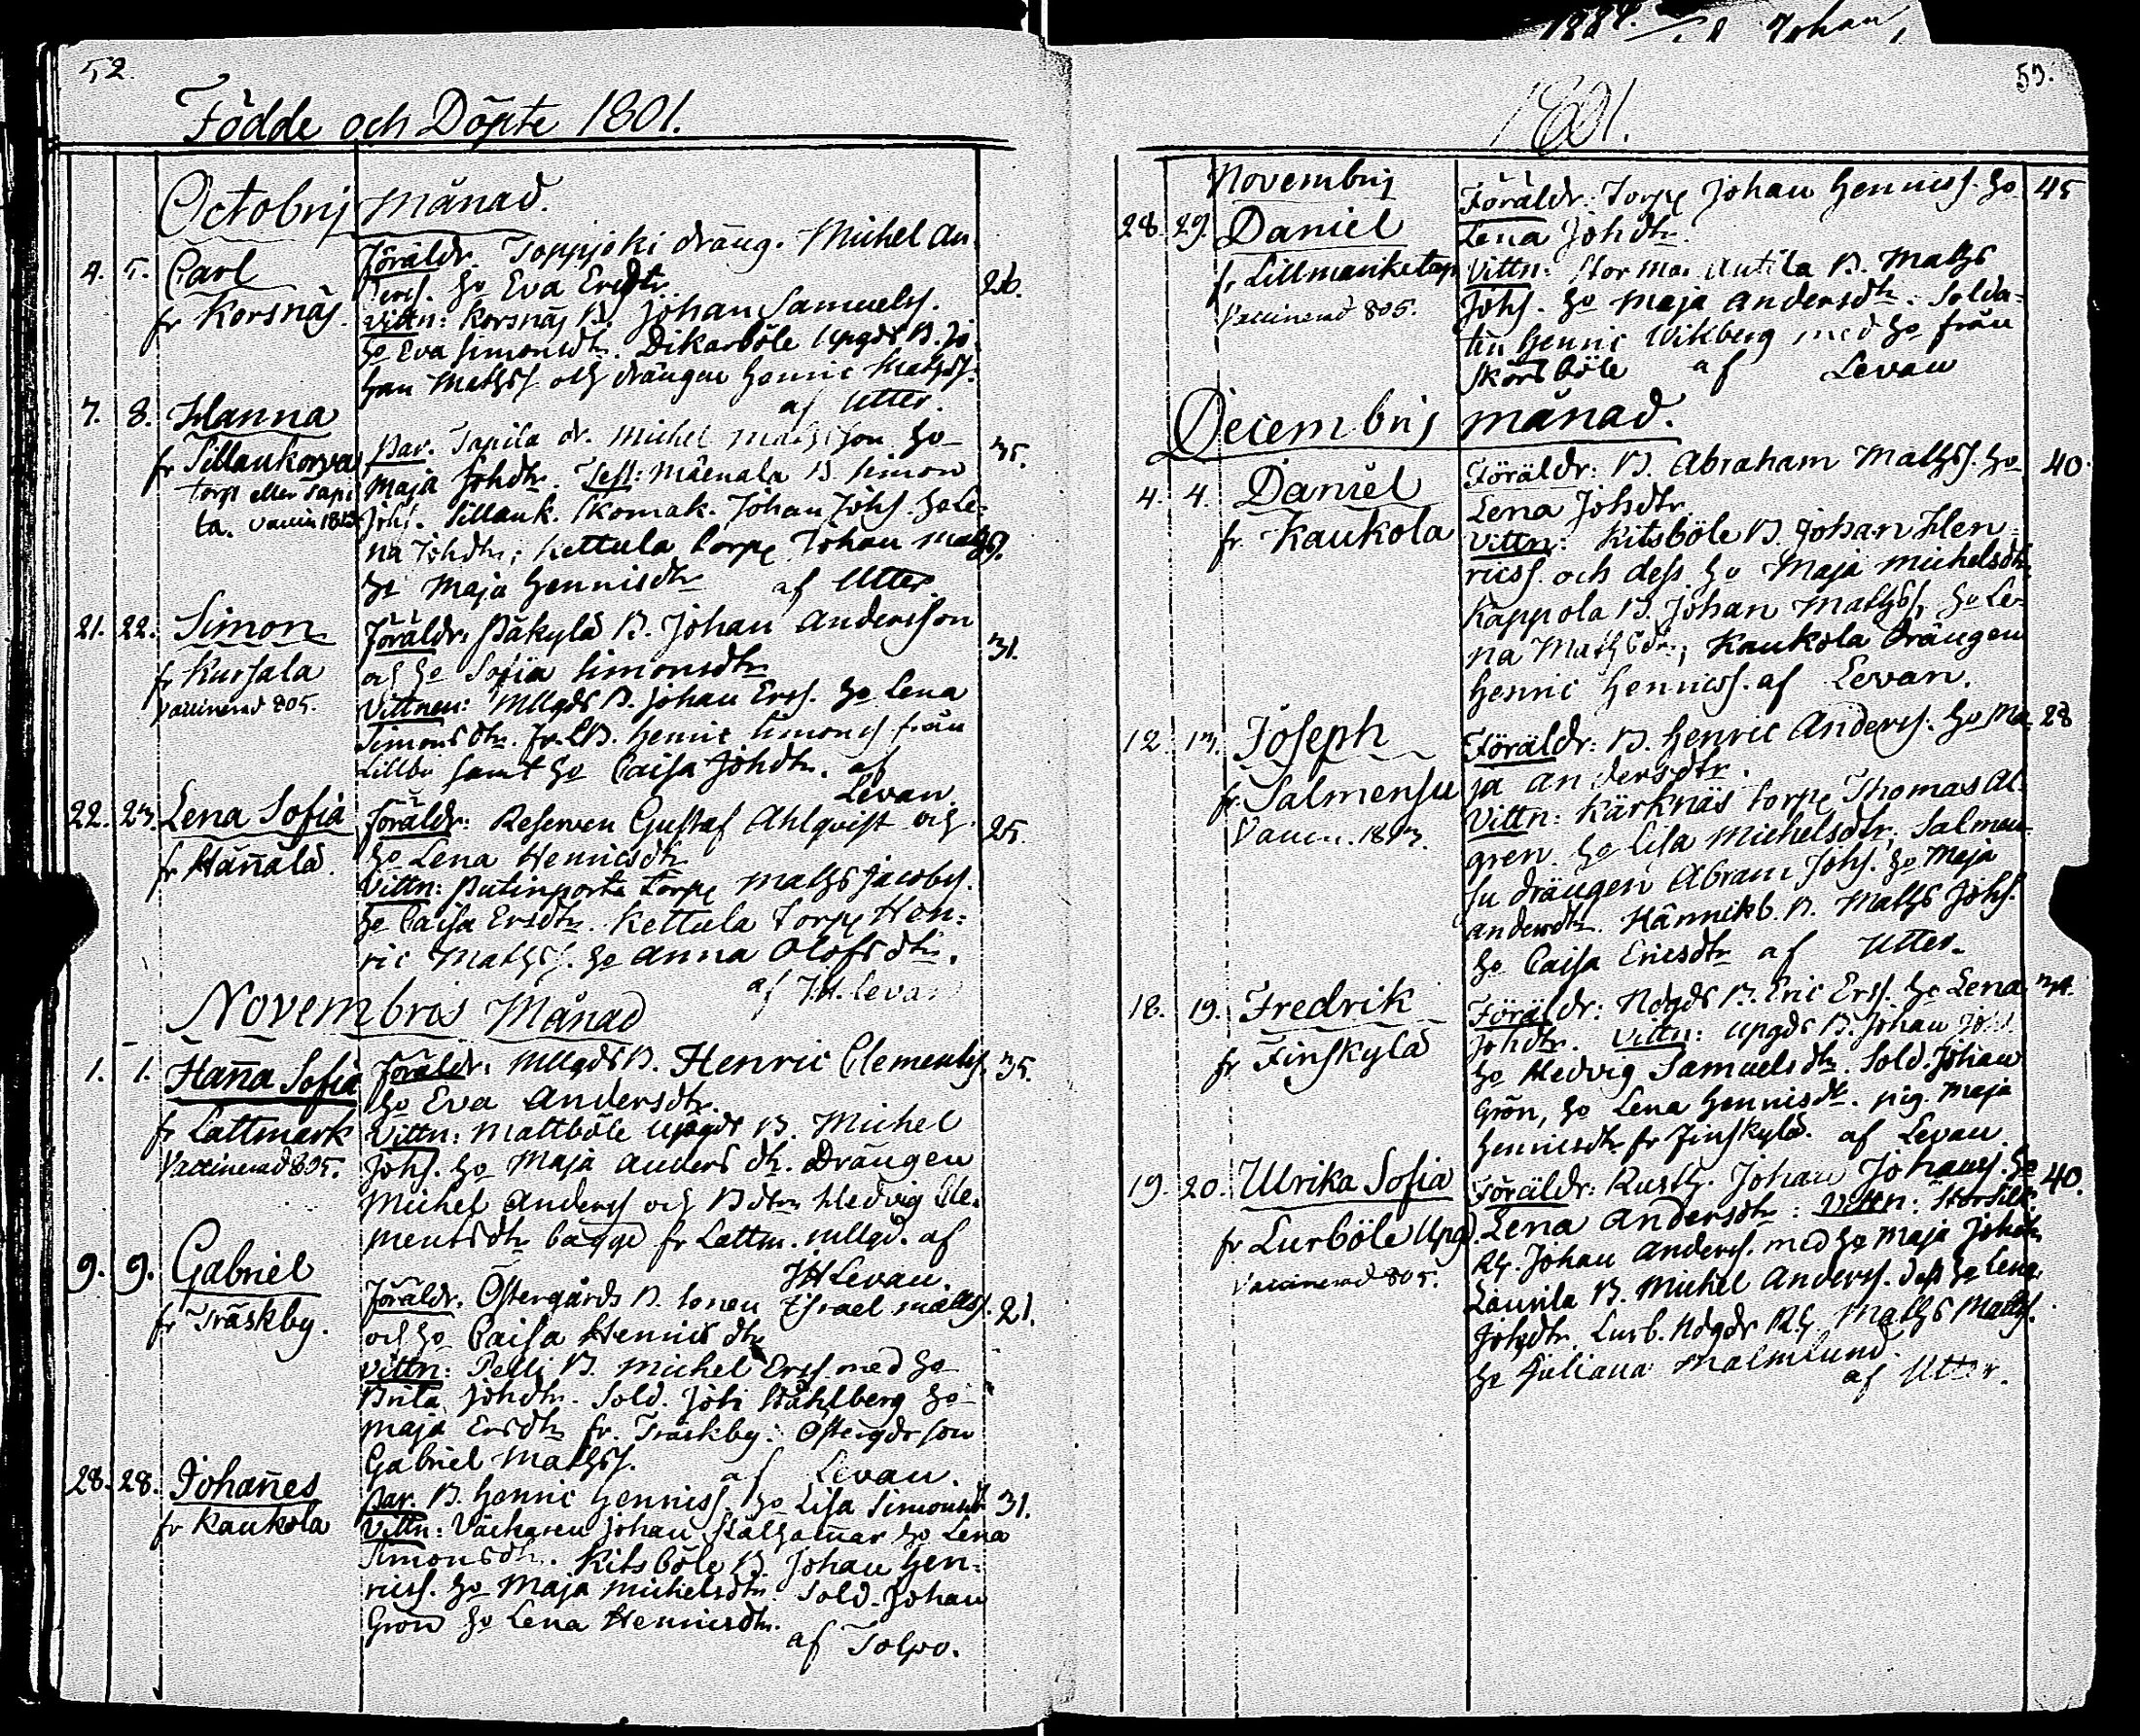 52.
Födde och Döpte 1801.
Octobrij månad.
4. 5. Carl
fr Korsnäs.
Föräldr. Toppjoki dräng. Michel An
Perss. Ho Eva Ersdtr 26.
Vittn: Korsnäs B. Johan Samuelss.
Ho Eva Simonsdtr. Dikarböle Upgds B. Jo
han Mathss och drängen Henric Mathss.
af Utter.
7. 8. Hanna
fr Sillankorva
torp eller Tapi
la. vaccin 1813
Par. Tapila dr. Michel Mathsson Ho 35.
Maja Johdtr. Test: Mäenala B Simon
Johs. Sillank. Skomak. Johan Johs. Ho Le-
na Johdtr; Kettula torp Johan Mathss.
Ho Maja Henricsdtr af Utter.
21. 22. Simon
fr Kursala
Vaccinerad 805.
Föräldr: Päkylä B. Johan Andersson
och Ho Sofia Simonsdtr 31.
Vittnen: Mllgds B. Johan Erss. Ho Lena
Simonsdtr. Henric Simonss från
Lillbu samt Ho Caisa Johdtr. af
Levan.
22. 23. Lena Sofia
fr Hañala.
Föräldr: Reserven Gustaf Ahlqvist och 25.
Ho Lena Henricsdtr
Vittn: Putinporta torp Maths Jacobss.
Ho Caisa Ersdtr. Kettula Torp Hen-
ric Mathss. Ho Anna Olofsdtr.
af J.H. Levan
Novembris Månad
1. 1. Haña Sofia
fr Lattmark
Vaccinerad 805.
Föräldr: Mllgds B. Henric Clementss. 35.
Ho Eva Andersdtr.
Vittn: Mattböle Upgds B. Michel
Johs. Ho Maja Andersdtr. Drängen
Michel Anderss och Bdtr Hedvig Cle-
mentsdtr Bagge fr Lattm. mllgd. af
JH Levan.
9. 9. Gabriel
fr Träskby.
Föräldr. Östergårds B. sonen Israel Mattss. 21.
och Ho Caisa Henricsdtr
Vittn: Pelli B. Michel Erss med Ho
Brita Johdtr. Sold. Joh Ståhlberg Ho
Maja Ersdtr fr. Träskby: Östergdr son
Gabriel Mathss.
af Levan.
28. 28. Johañes
fr Kaukola
Par. B. Henric Henricss. Ho Lisa Simonsdtr 31.
Vittn: Väckaren Johan Stålhamar Ho Lena
Simonsdtr. Kitsböle B. Johan Hen-
ricss. Ho Maja Michelsdtr Sold. Johan
Grön Ho Lena Henricsdtr.
af Tolpo.
1884. Johan
53.
1801.
Novembrij
28. 29. Daniel
fr Lillmanketorp
Vaccinerad 805.
Föräldr: Torp Johan Henricss. Ho 45
Lena Johdtr.
Vittn: Stor Ma. Antila B. Maths
Johs. Ho Maja Andersdtr. Solda-
ten Henric Wikberg med Ho från
Skorsböle af Levan
Decembrij månad.
4. 4. Daniel
fr. Kaukola
Föräldr: B. Abraham Mathss. Ho 40.
Lena Johsdtr.
Vittn: Kitsböle B. Johan Hen-
ricss. och dess Ho Maja Michelsdtr
Kappola B. Johan Mathss, Ho Le-
na Mathsdr; Kaukola drängen
Henric Henricss. af Levan.
12. 13. Joseph
fr Salmensu
Vaccin. 1813.
Föräldr: B. Henric Anderss. Ho Ma- 28
ja Andersdtr.
Vittn: Kärknäs torp Thomas Al-
gren. Ho Lisa Michelsdtr; Salmen-
su drängen Abram Johs. Ho Maja
Andersdtr. Hännikb. B. Maths Johs.
Ho Caisa Ericsdtr af Utter.
18. 19. Fredrik
fr Finskylä
Föräldr: Ndgds B. Eric Erss. Ho Lena 34.
Johdtr. Vittn: Upgds B. Johan
Ho Hedvig Samuelsdtr. Sold. Johan
Grön, Ho Lena Henricsdtr. pig. Maja
Henricsdtr fr Finskylä. af Levan.
19. 20. Ulrika Sofia
fr Lurböle Upg.
Vaccinerad 805.
Föräldr: Rusth. Johan Johanss. Ho 40.
Lena Andersdtr: Vittn: Storsilk.
Rh. Johan Anderss. med Ho Maja Johdtr
Laurila B. Michel Anderss. dess Ho Lena
Johsdtr. Lurb. Ndgds Rh. Maths Mathss.
Ho Juliana Malmlund.
af Utter.